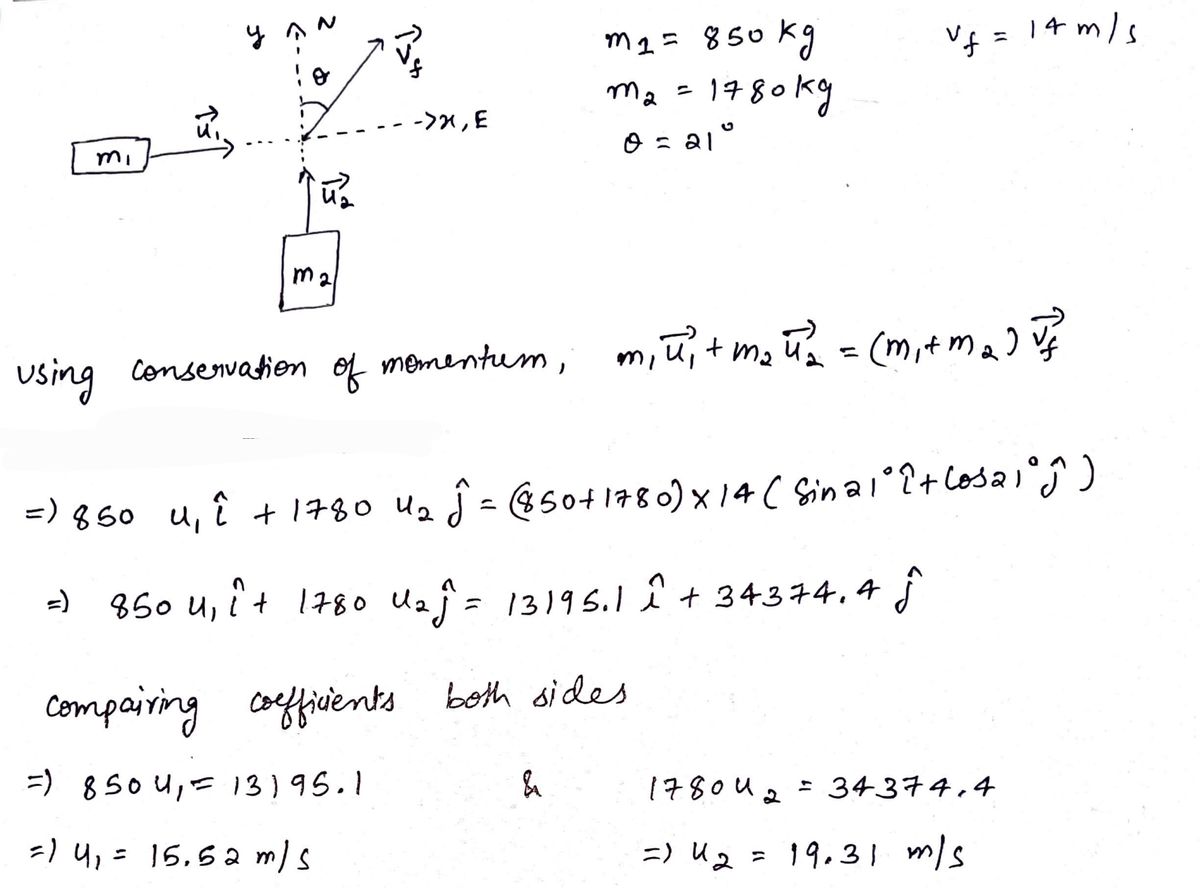 y N
θ
v⃗_f
m₁ u⃗₁ ->x, E
u⃗₂
m₂
m₁ = 850 kg
v_f = 14 m/s
m₂ = 1780 kg
θ = 21°
using conservation of momentum, m₁u⃗₁ + m₂u⃗₂ = (m₁ + m₂) v⃗_f
=) 850 u₁ î + 1780 u₂ ĵ = (850+1780) x 14 ( Sin21° î + Cos21° ĵ )
=) 850 u₁ î + 1780 u₂ ĵ = 13195.1 î + 34374.4 ĵ
compairing coefficients both sides
=) 850 u₁ = 13195.1 & 1780 u₂ = 34374.4
=) u₁ = 15.52 m/s =) u₂ = 19.31 m/s